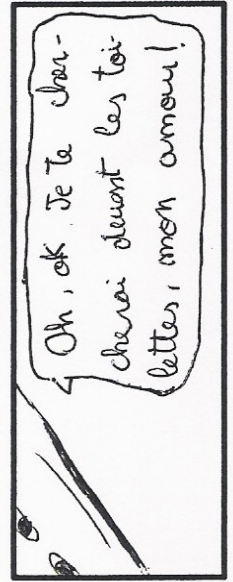 Oh, ok Je te cher-
cherai devant les toi-
lettes, mon amour!